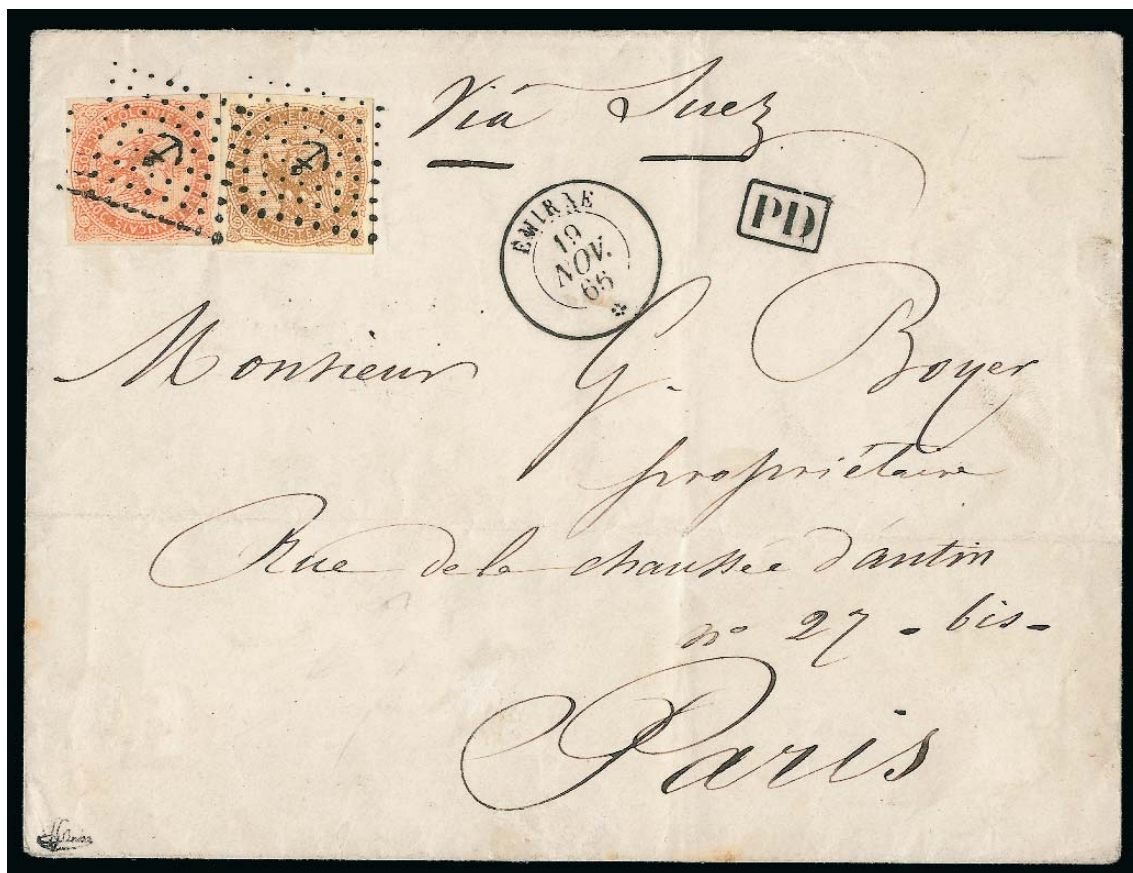 Via Suez
PD
EMIRNE
19
NOV.
65
Monsieur G. Boyer
propriétaire
Rue de la chaussée d'antin
n° 27 - bis -
Paris